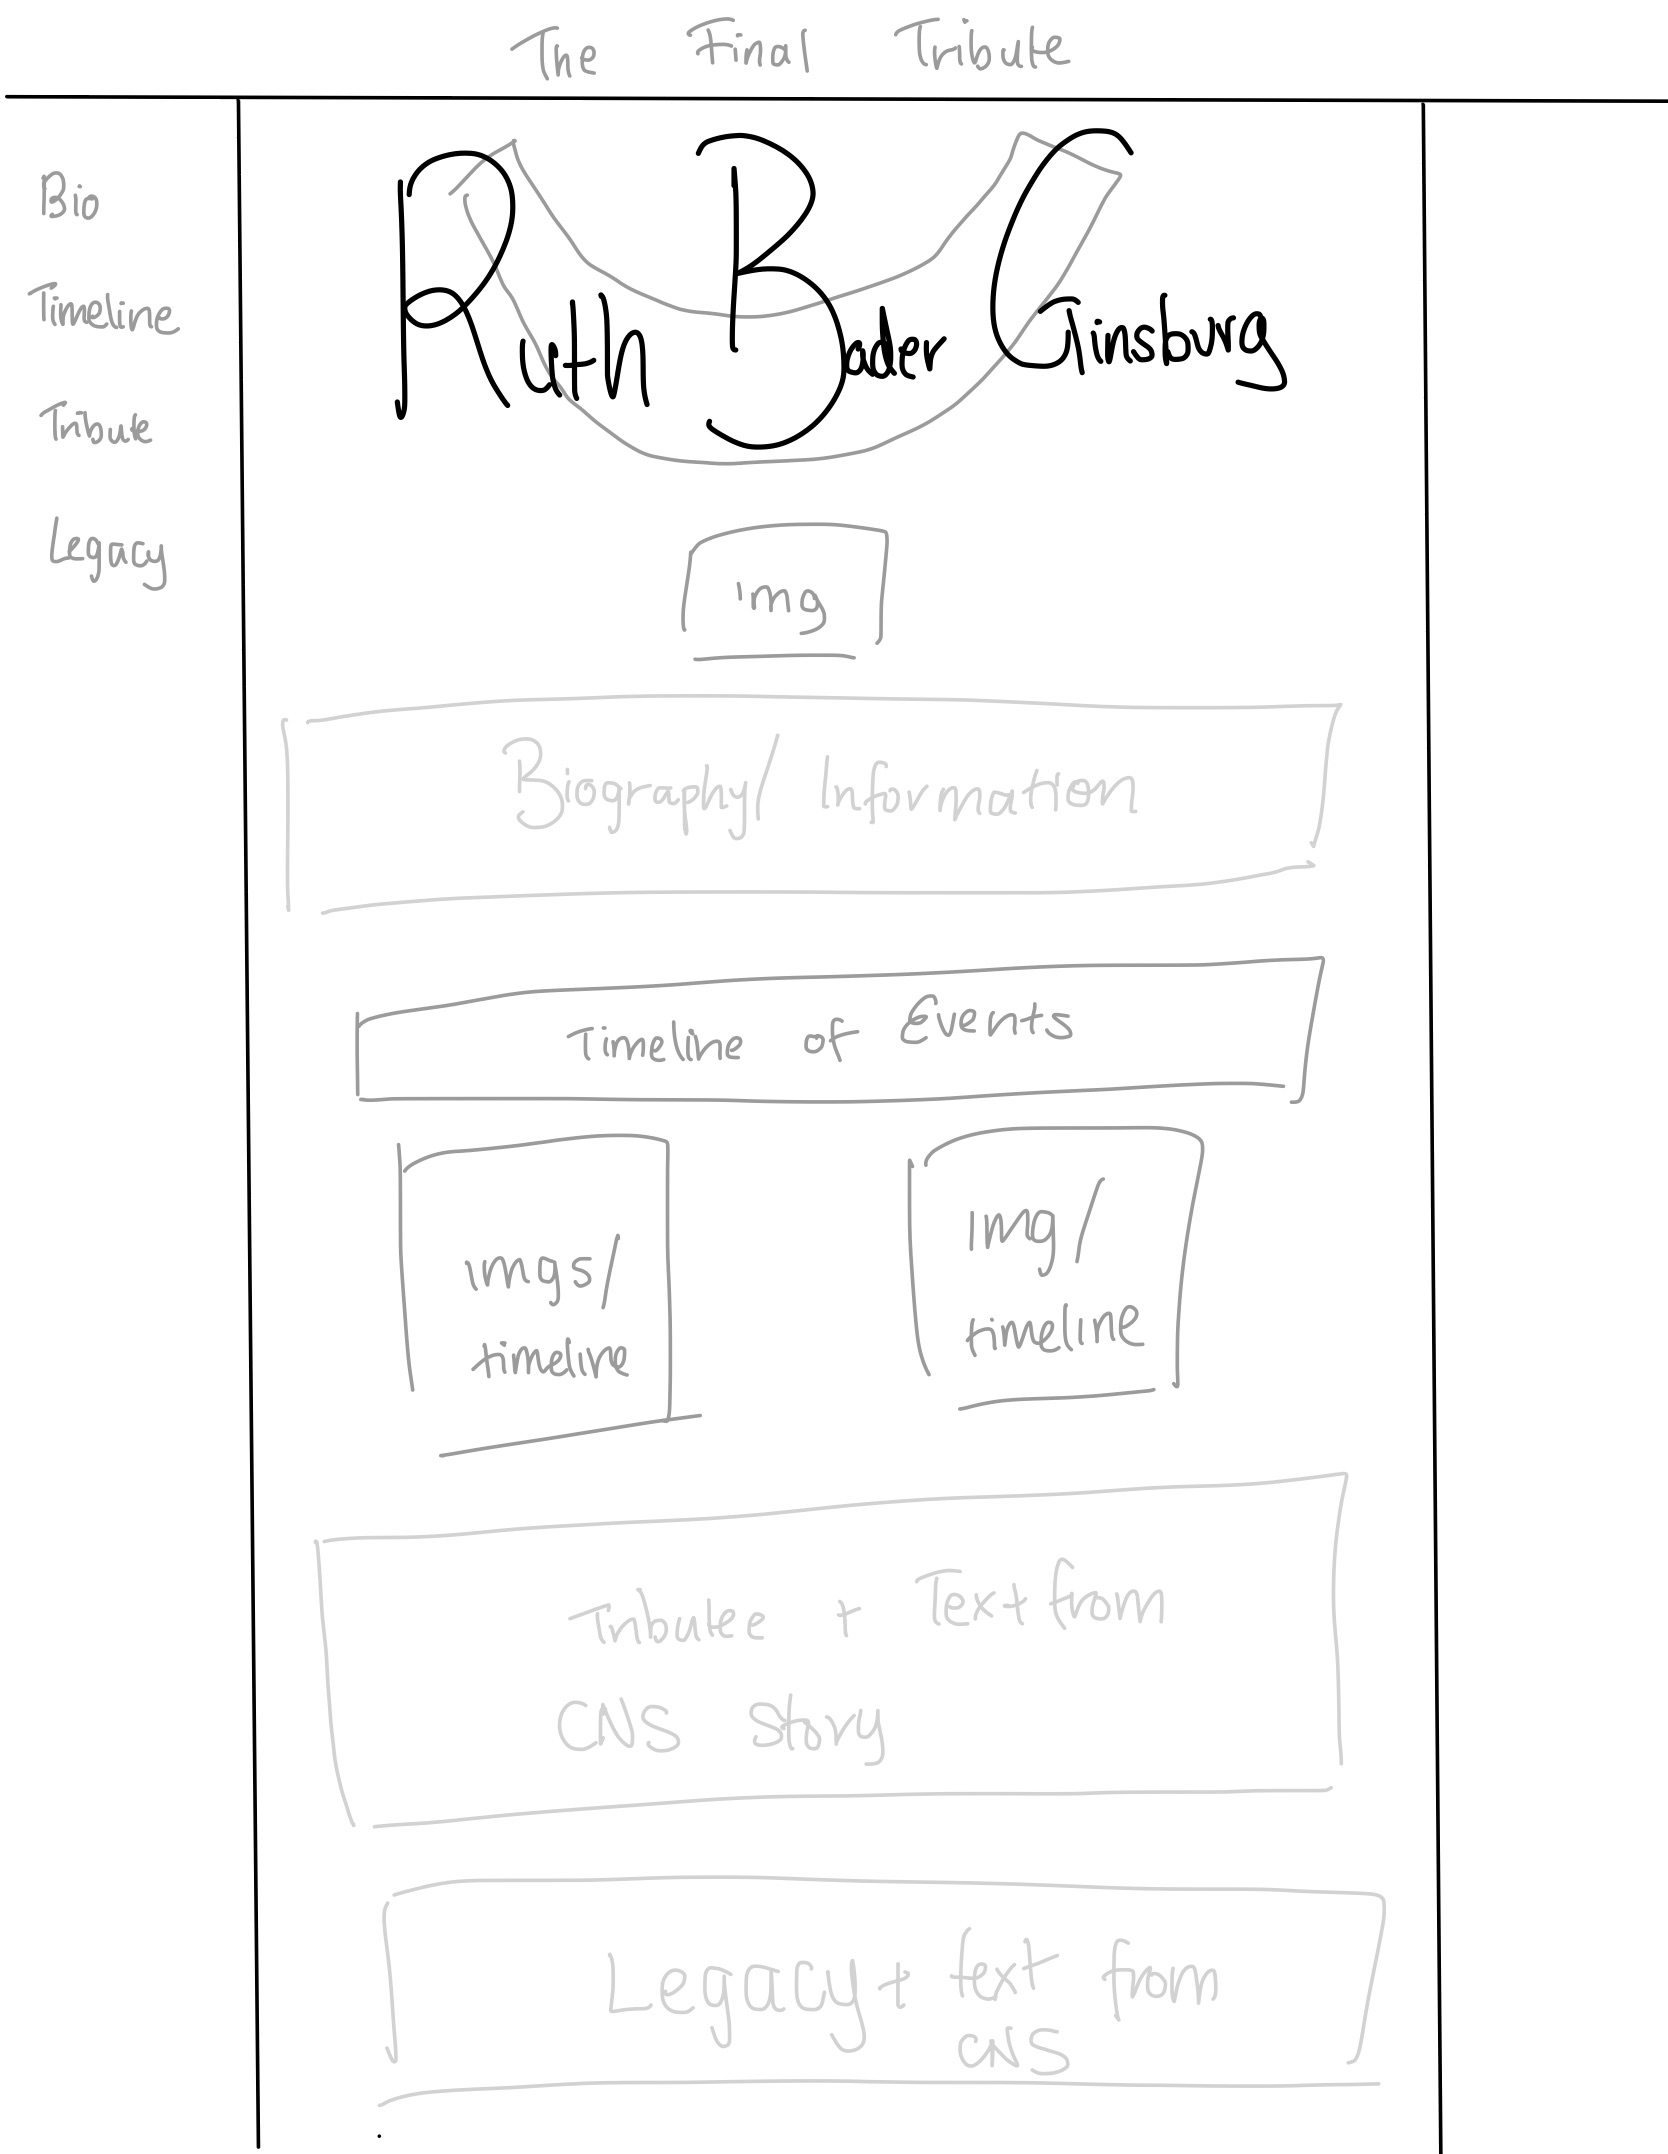 The Final Tribute
Bio
Timeline
Tribute
Legacy
Ruth Bader Ginsburg
img
Biography/ Information
Timeline of Events
imgs/
timeline
img/
timeline
Tributee + Text from
CNS Story
Legacy + text from
CNS